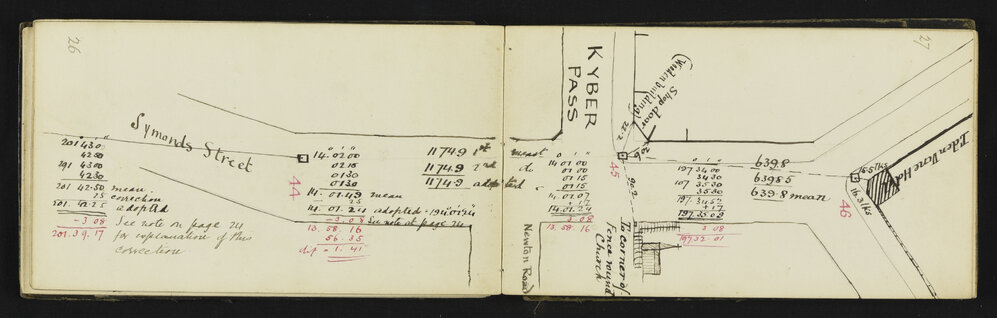 26
Symonds Street
° ' "
201 43 0
42 50
291 43 00
42 30
201 42 50 mean
25 correction
201 42 25 adopted
-3 08
201.39.17
See note on page 24
for explanation of this
correction
44
° ' "
14. 02. 00
02 15
01 30
01 30
14. 01. 49 mean
25
14. 01. 24 adopted - 194° 01' 24"
-3. 08 See note at page 24
13. 58. 16
56 35
dif = 1. 41
1174.9 1st meast
1174.9 2nd do
1174.9 adopted
27
KYBER
PASS
(Wooden building)
Shop door
22.2
26
45
90.2
° ' "
14 01 00
01 15
01 15
01 15
14. 01. 24
3 08
13. 58. 16
Newton Road
To corner of
Fence round
Church
° ' "
197 34 00
34 30
107 35 30
35 30
197. 34. 52
+ 17
197. 35 09
3 08
197 32 01
639.8
639.85
639.8 mean
46
55 lks
16.3 lks
Eden Vine Hotel